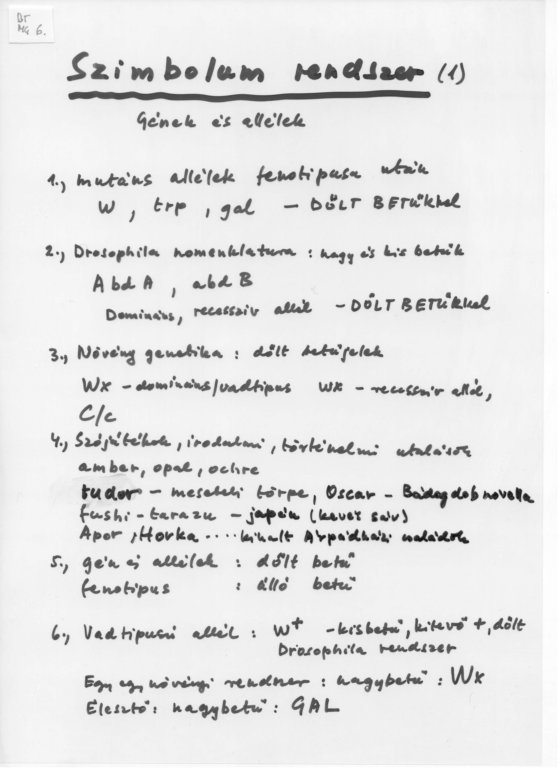 BT
MG 6.
Szimbolum rendszer (1)
Gének és allélek
1., mutáns allélek fenotipusa után
W, trp, gal - DŐLT BETŰKKEL
2., Drosophila nomenklatura: nagy és kis betűk
Abd A, abd B
Domináns, recessziv allél - DŐLT BETŰKKEL
3., Növény genetika: dőlt betűjelek
Wx - domináns/vadtipus wx - recessziv allél,
C/c
4., Szójátékok, irodalmi, történelmi utalások
amber, opal, ochre
tudor - mesebeli törpe, Oscar - Bádogdob novella
fushi-tarazu - japán (kevés sáv)
Apor, Horka .... kihalt Árpádházi családok
5., gén és allélek : dőlt betű
fenotipus : álló betű
6., Vadtipusú allél: W+ - kisbetű, kitevő +, dőlt
Drosophila rendszer
Egy egy növényi rendszer: nagybetű: Wx
Élesztő: nagybetű: GAL